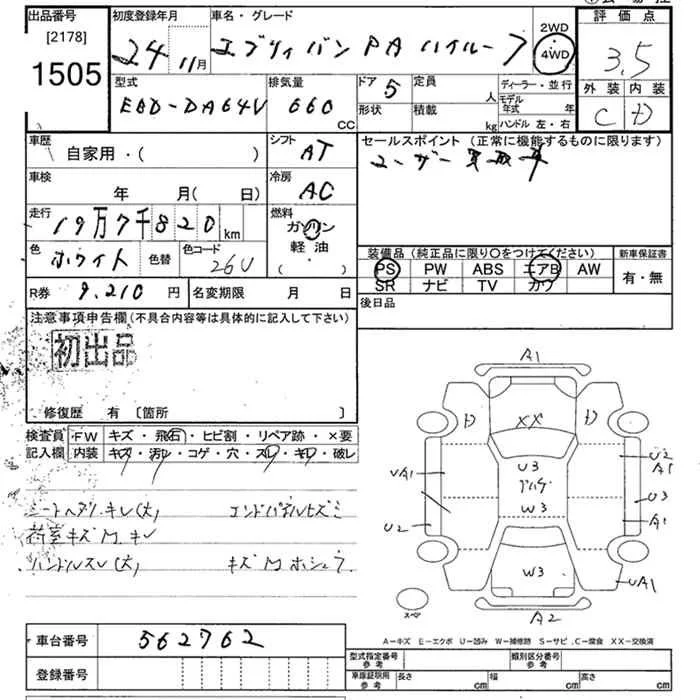 出品番号
[2178]
1505
初度登録年月
24年 11月
車名・グレード
エブリィバン PA ハイルーフ
2WD
4WD
評価点
3.5
外装 内装
C D
型式
EBD-DA64V
排気量
660 CC
ドア 5
定員 人
形状
積載 kg
ディーラー・並行
モデル年式 年
ハンドル 左・右
車歴
自家用・( )
シフト
AT
セールスポイント (正常に機能するものに限ります)
ユーザー買取車
車検
年 月(日)
冷房
AC
走行
19万7千820 km
燃料
ガソリン
軽油
( )
色
ホワイト
色替
色コード
26U
装備品 (純正品に限り○をつけてください)
PS PW ABS エアB AW
SR ナビ TV カワ
新車保証書
有・無
R券 9,210 円
名変期限 月 日
後日品
注意事項申告欄(不具合内容等は具体的に記入して下さい)
初出品
修復歴 有 〔箇所 〕
検査員記入欄
FW キズ・飛石・ヒビ割・リペア跡・×要
内装 キズ・汚レ・コゲ・穴・スレ・キレ・破レ
シートヘタリ・キレ(大) エンドパネルヒズミ
荷室キズM、キレ
ハンドルスレ(大) キズM ホシュウ
A1
D XX D
UA1 U3 U2
A1
W3 U3
U2 A1
W3 UA1
スペア
A2
A−キズ E−エクボ U−凹み W−補修跡 S−サビ C−腐食 XX−交換済
車台番号 562762
登録番号
型式指定番号 参考
類別区分番号 参考
車庫証明用 参考
長さ cm 幅 cm 高さ cm